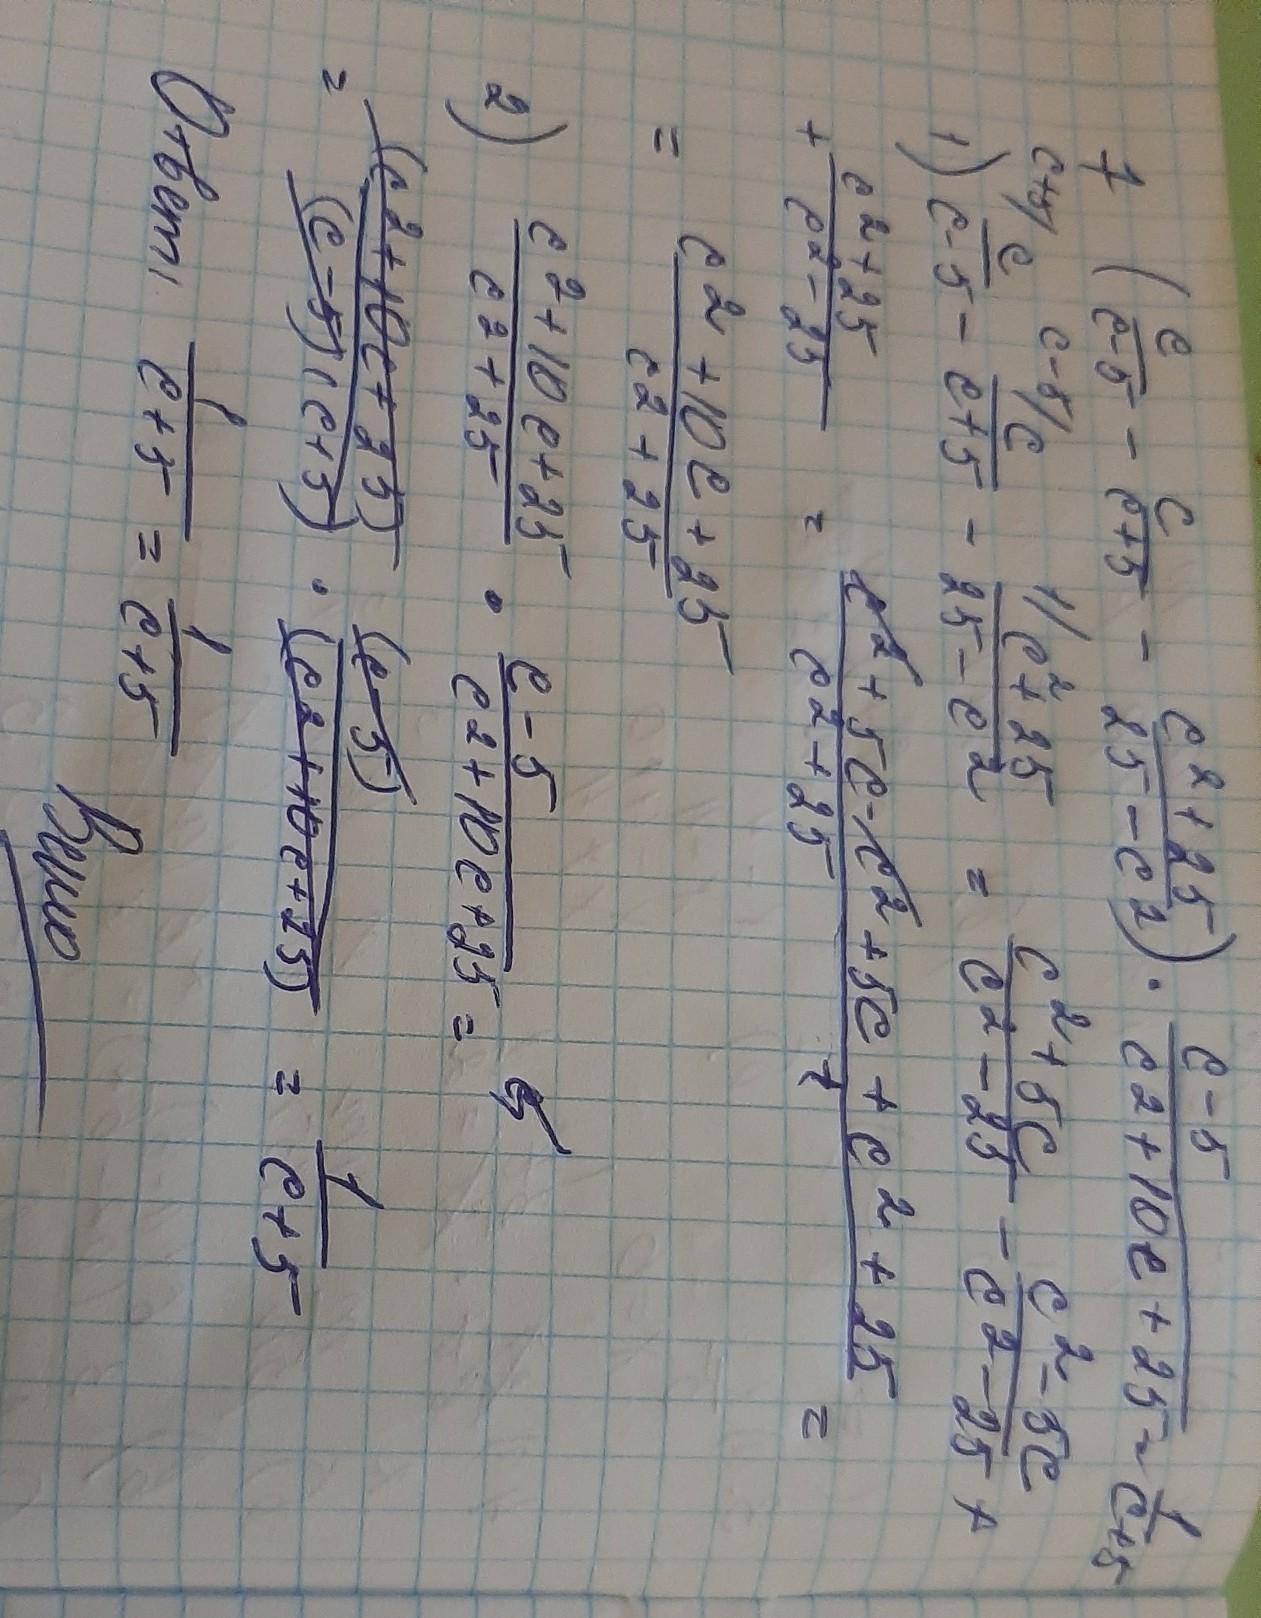 1 (c/(c-5) - c/(c+5) - (c²+25)/(25-c²)) · (c-5)/(c²+10c+25) = 1/(c+5)
1) c+5/ c/(c-5) - c-5/ c/(c+5) - 1/ (c²+25)/(25-c²) = (c²+5c)/(c²-25) - (c²-5c)/(c²-25) +
+ (c²+25)/(c²-25) = (c²+5c-c²+5c+c²+25)/(c²+25) =
= (c²+10c+25)/(c²+25)
2) (c²+10c+25)/(c²+25) · (c-5)/(c²+10c+25) =
= (c²+10c+25)/((c-5)(c+5)) · (c-5)/(c²+10c+25) = 1/(c+5)
Ответ, 1/(c+5) = 1/(c+5)